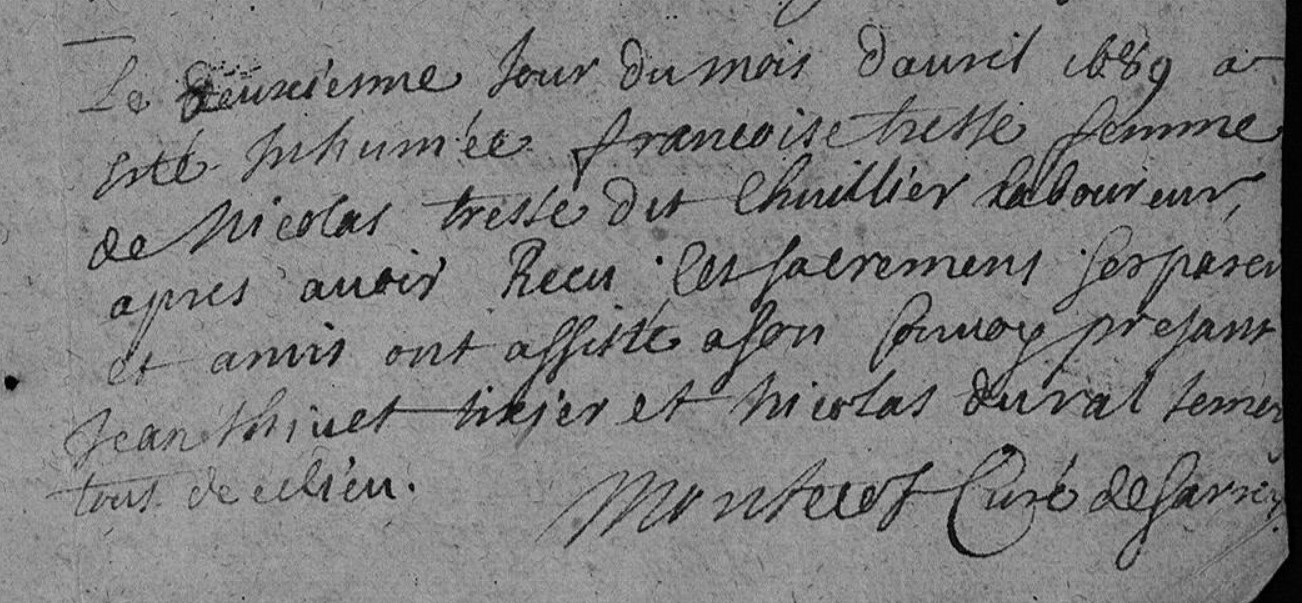 Le deuxiesme Jour du mois davril 1689 a
esté Inhumée francoise tresse femme
de Nicolas tresse dit Lhuillier laboureur,
apres avoir Receu les sacremens ses paren
et amis ont assiste a son Convoy presant
Jean thivet tixier et Nicolas duval
tous de ce lieu. Curé de Sarrey.